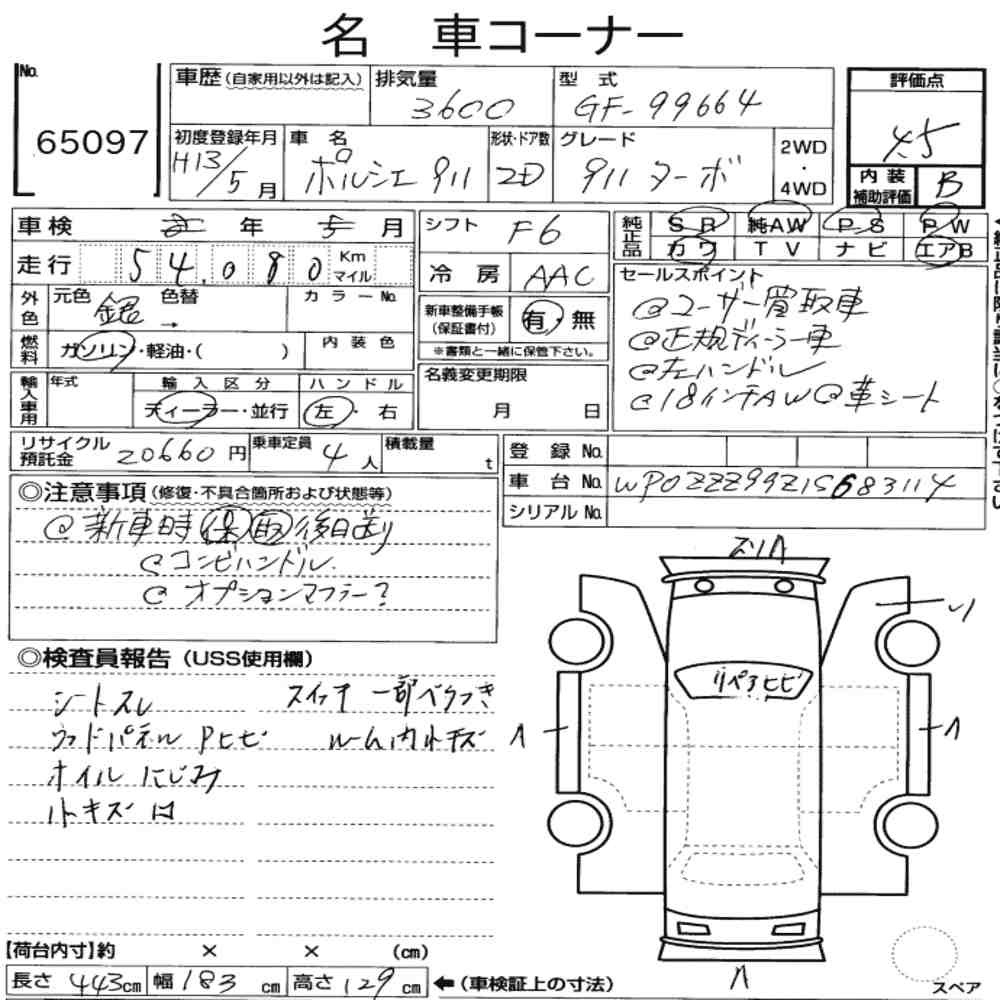 名 車コーナー
No.
65097
車歴(自家用以外は記入)
排気量
3600
型 式
GF-99664
評価点
4.5
初度登録年月
H13/5月
車 名
ポルシェ 911
形状・ドア数
2D
グレード
911 ターボ
2WD
・
4WD
内装
補助評価
B
車検 年 月
シフト
F6
純正品
SR 純AW PS PW
カワ TV ナビ エアB
走行 54,080 Km
マイル
冷房
AAC
セールスポイント
@ユーザー買取車
@正規ディーラー車
@左ハンドル
@18インチAW@革シート
外色
元色 銀 色替 →
カラーNo.
新車整備手帳
(保証書付)
有・無
※書類と一緒に保管下さい。
燃料
ガソリン・軽油・( )
内装色
名義変更期限
月 日
輸入車用
年式
輸入区分
ディーラー・並行
ハンドル
左・右
リサイクル
預託金
20660円
乗車定員
4人
積載量
t
登録No.
車台No. WP0ZZZ99Z1S683114
シリアルNo.
◎注意事項(修復・不具合箇所および状態等)
@新車時保取後日渡り
@コンビハンドル.
@オプションマフラー?
◎検査員報告(USS使用欄)
シートスレ スイッチ一部ベタつき
ウッドパネルPヒビ ルーム内小キズ
オイルにじみ
小キズ
スリA
リペアヒビ
A
A
A
スペア
【荷台内寸】約 × × (cm)
長さ 443cm 幅 183cm 高さ 129cm ←(車検証上の寸法)